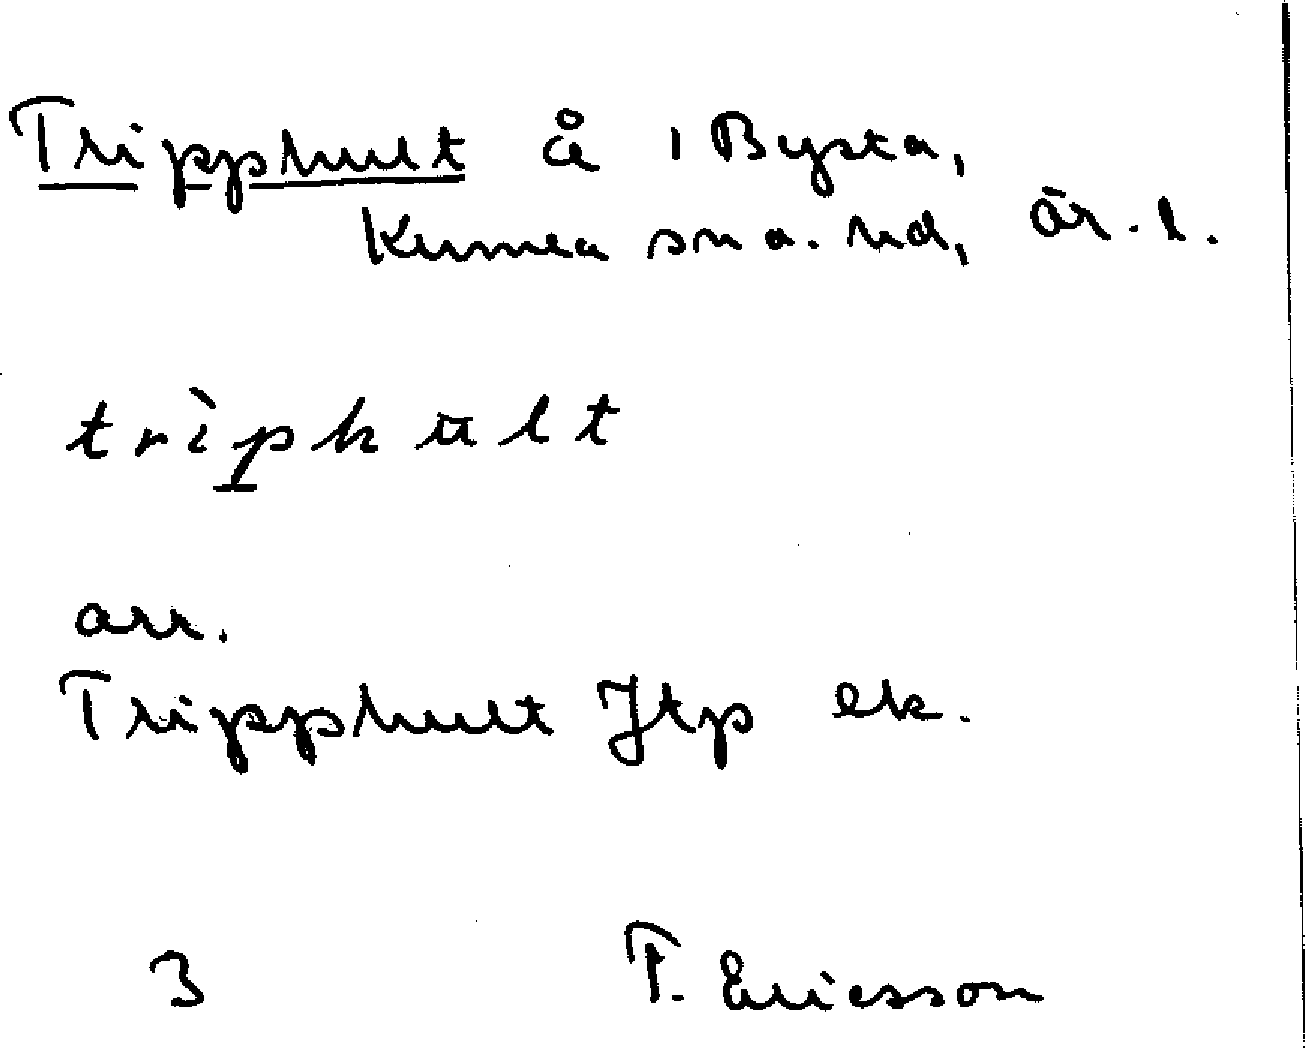 Tripphult å 1 Bysta,
Kumla sn o. hd, Ör. l.
trìphult
arr.
Tripphult Jtp ek.
3 T. Ericsson